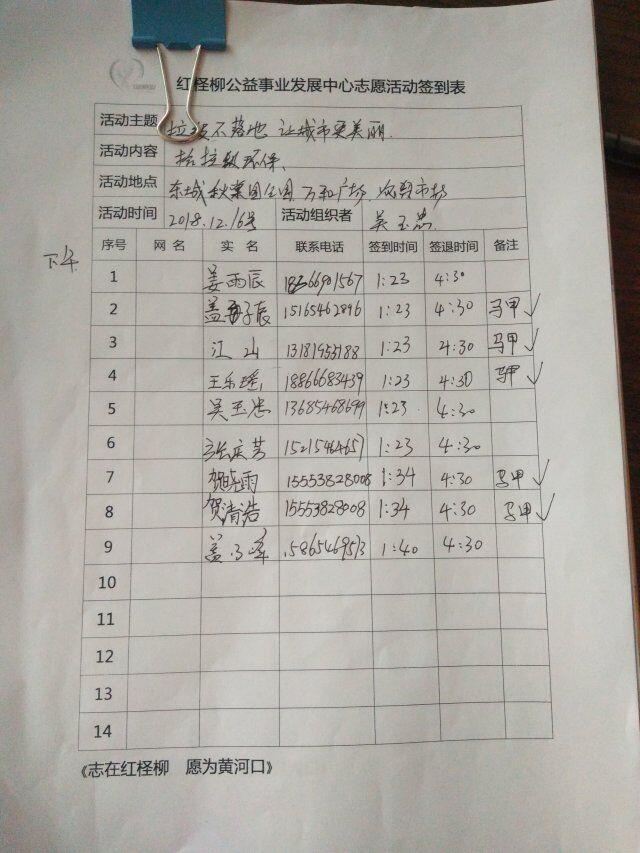 红柽柳公益事业发展中心志愿活动签到表
活动主题 垃圾不落地 让城市更美丽.
活动内容 捡垃圾环保、
活动地点 东城 秋栗园公园 万和广场
活动时间 2018.12.16号 活动组织者 吴玉忠
下午
序号 网名 实名 联系电话 签到时间 签退时间 备注
1 姜雨辰 1:23 4:30
2 15165462896 1:23 4:30 马甲✓
3 江山 13181953188 1:23 4:30 马甲✓
4 王乐瑶 18866683439 1:23 4:30 马甲✓
5 吴玉忠 13685468699 1:23 4:30
6 张庆芳 15215464657 1:23 4:30
7 贺晓雨 15553828008 1:34 4:30 马甲✓
8 贺清浩 15553828008 1:34 4:30 马甲✓
9 1:40 4:30
10
11
12
13
14
《志在红柽柳 愿为黄河口》